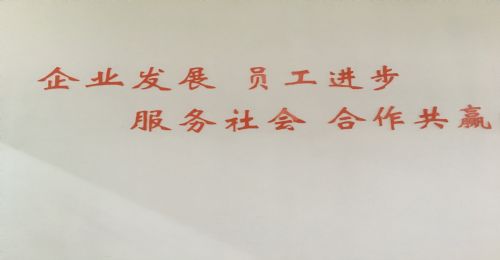 企业发展 员工进步
服务社会 合作共赢